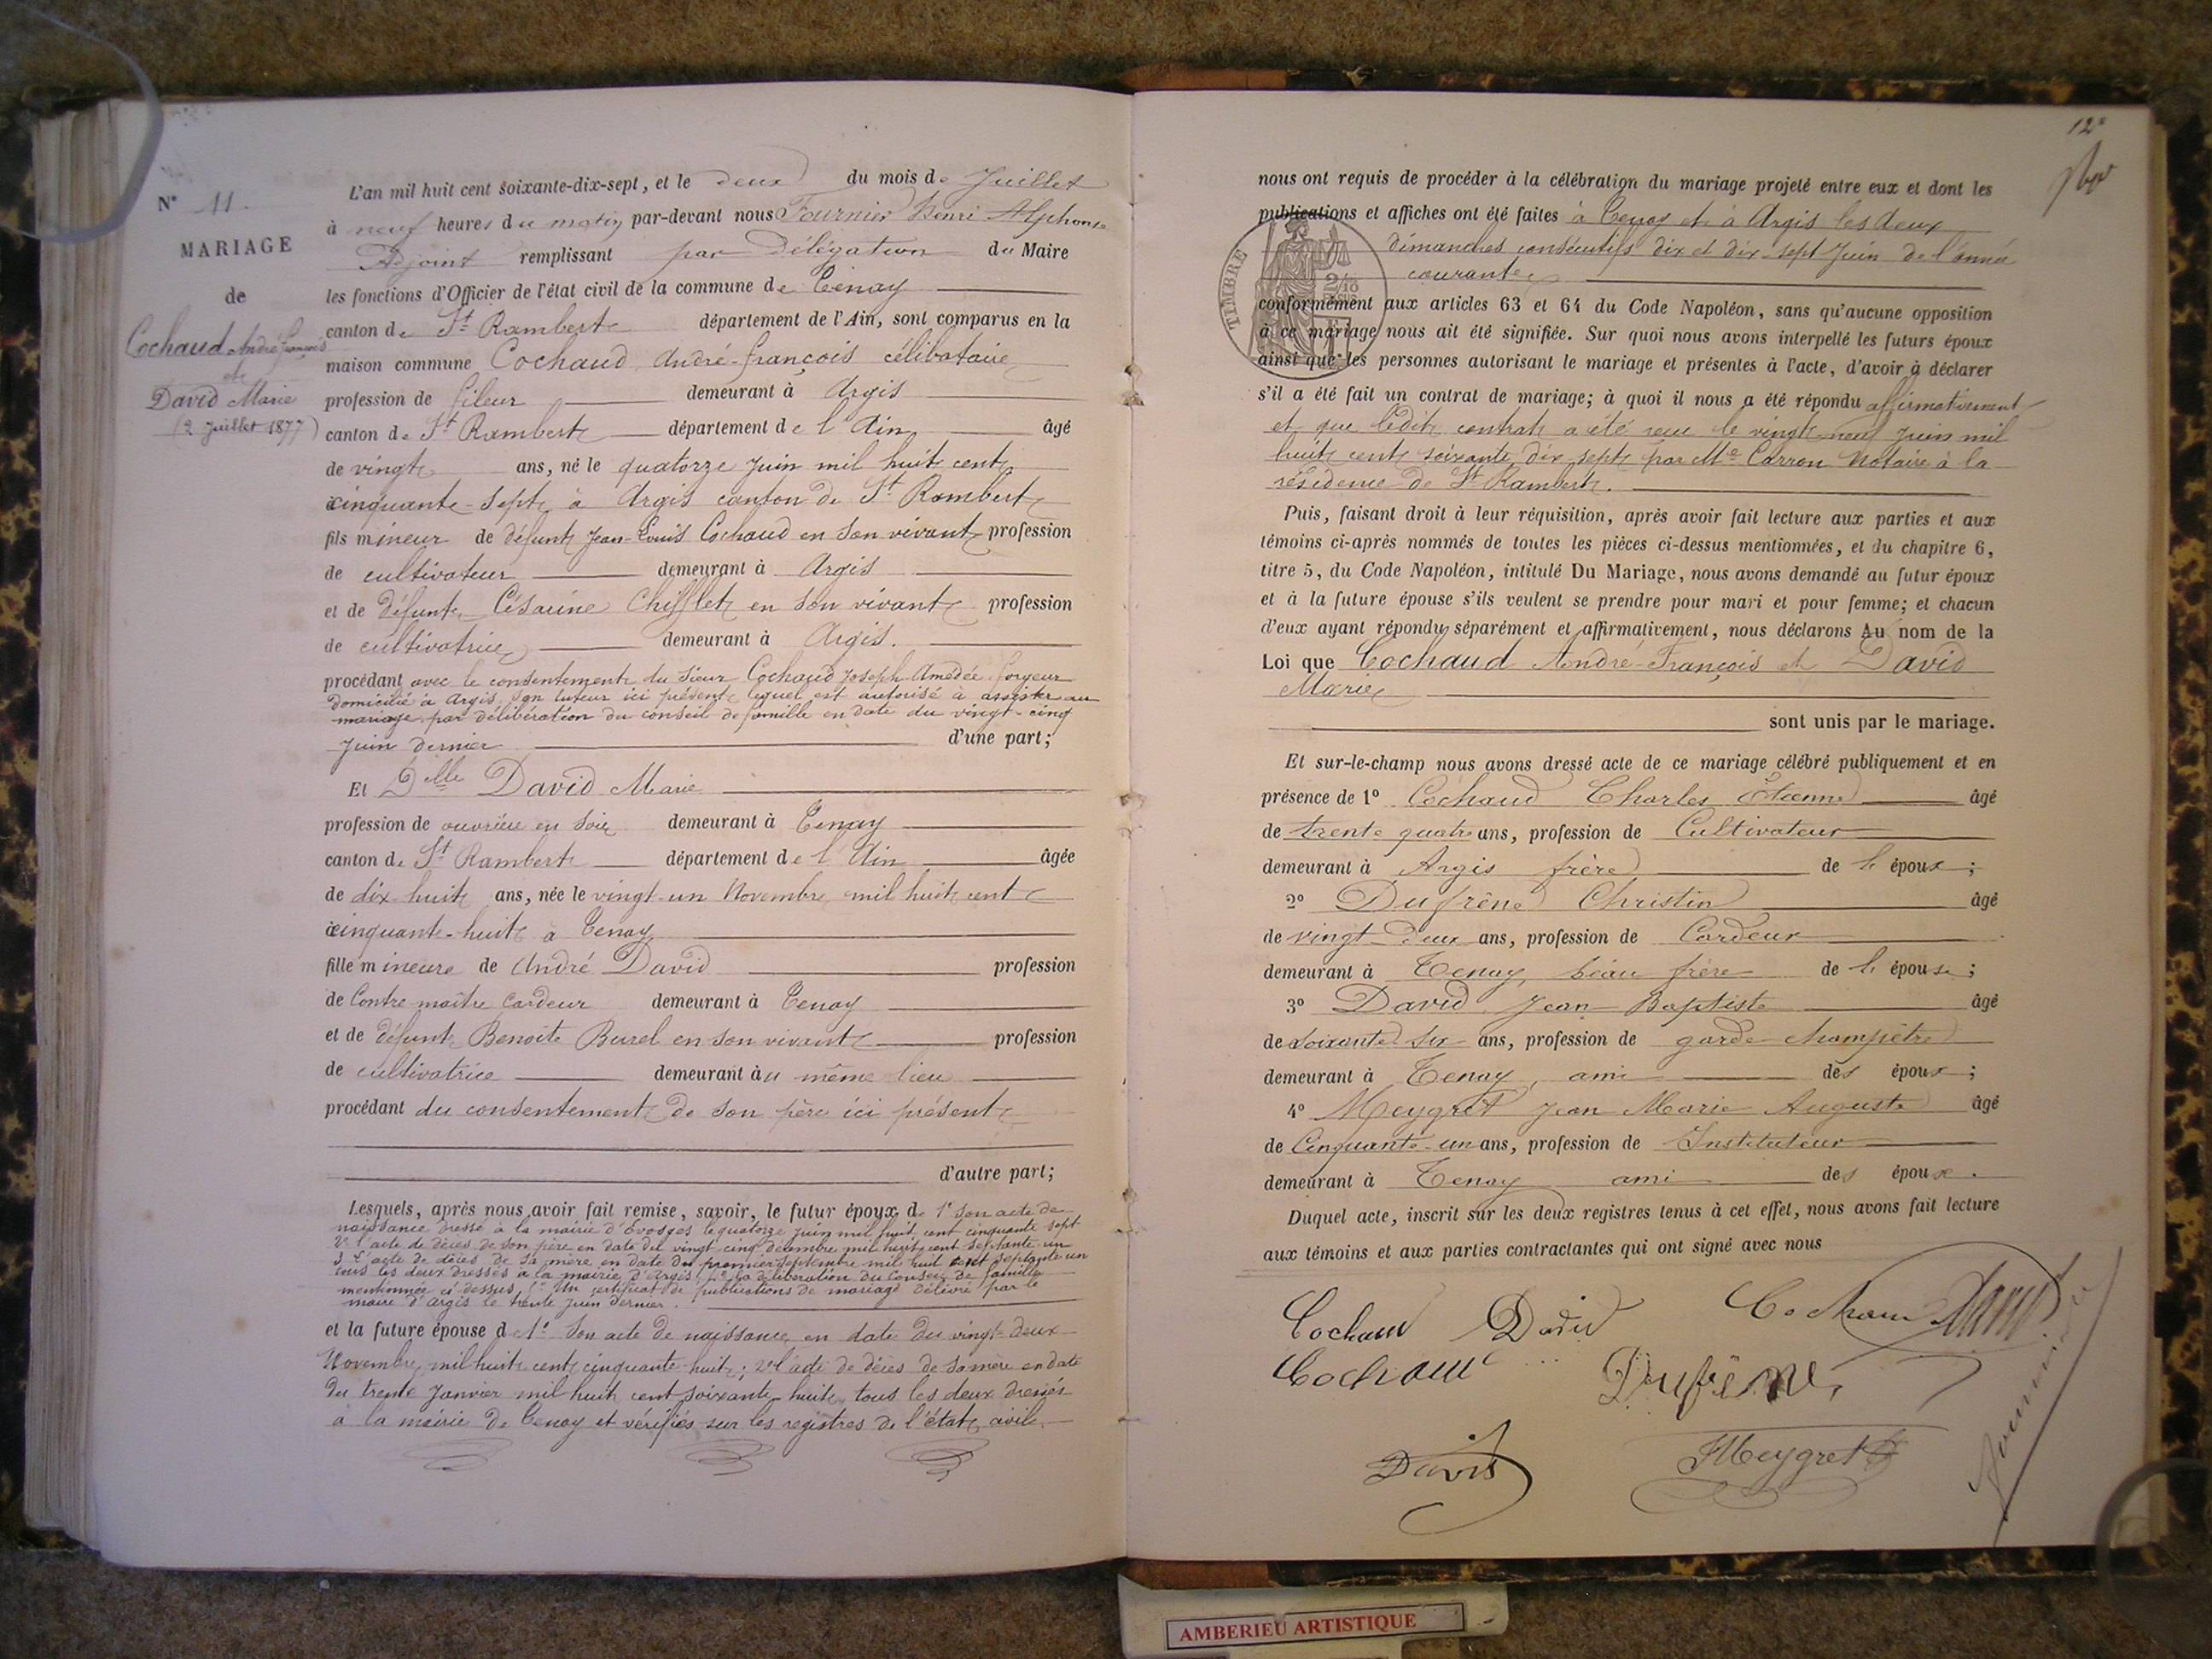 N° 11.
MARIAGE
de
Cochaud André François
et
David Marie
(2 Juillet 1877)
L'an mil huit cent soixante-dix-sept, et le deux du mois de Juillet
à neuf heures du matin, par-devant nous Fournier Henri Alphonse
Adjoint remplissant par Délégation du Maire
les fonctions d'Officier de l'état civil de la commune de Tenay
canton de St Rambert département de l'Ain, sont comparus en la
maison commune Cochaud, André-François célibataire
profession de fileur demeurant à Argis
canton de St Rambert département de l'Ain âgé
de vingt ans, né le quatorze Juin mil huit cent
cinquante-sept, à Argis canton de St Rambert
fils mineur de défunt Jean-Louis Cochaud en son vivant profession
de cultivateur demeurant à Argis
et de défunte Césarine Chifflet en son vivant profession
de cultivatrice demeurant à Argis.
procédant avec le consentement du sieur Cochaud Joseph Amédée forgeur
domicilié à Argis, son tuteur ici présent lequel est autorisé à assister au
mariage par délibération du conseil de famille en date du vingt-cinq
Juin dernier d'une part;
Et Delle David Marie
profession de ouvrière en soie demeurant à Tenay
canton de St Rambert département de l'Ain âgée
de dix-huit ans, née le vingt-un Novembre mil huit cent
cinquante-huit à Tenay
fille mineure de André David profession
de Contre-maître cardeur demeurant à Tenay
et de défunte Benoîte Burel en son vivant profession
de cultivatrice demeurant au même lieu
procédant du consentement de son père ici présent
d'autre part;
Lesquels, après nous avoir fait remise, savoir, le futur époux de 1° son acte de
naissance dressé à la mairie d'Evosges le quatorze Juin mil huit cent cinquante sept
2° l'acte de décès de son père en date du vingt cinq décembre mil huit cent septante un
3° l'acte de décès de sa mère en date du premier septembre mil huit cent septante un
tous les deux dressés à la mairie d'Argis, 4° la délibération du Conseil de famille
mentionnée ci-dessus, 5° Un certificat de publications de mariage délivré par le
maire d'Argis le trente Juin dernier.
et la future épouse de 1° Son acte de naissance en date du vingt-deux
Novembre mil huit cent cinquante-huit; 2° l'acte de décès de sa mère en date
du trente Janvier mil huit cent soixante-huit, tous les deux dressés
à la mairie de Tenay et vérifiés sur les registres de l'état civil.
12
nous ont requis de procéder à la célébration du mariage projeté entre eux et dont les
publications et affiches ont été faites à Tenay et à Argis les deux
dimanches consécutifs dix et dix-sept Juin de l'année
courante
TIMBRE
conformément aux articles 63 et 64 du Code Napoléon, sans qu'aucune opposition
à ce mariage nous ait été signifiée. Sur quoi nous avons interpellé les futurs époux
ainsi que les personnes autorisant le mariage et présentes à l'acte, d'avoir à déclarer
s'il a été fait un contrat de mariage; à quoi il nous a été répondu affirmativement
et que ledit contrat a été reçu le vingt-neuf Juin mil
huit cent soixante dix sept par Me Carron Notaire à la
résidence de St Rambert.
Puis, faisant droit à leur réquisition, après avoir fait lecture aux parties et aux
témoins ci-après nommés de toutes les pièces ci-dessus mentionnées, et du chapitre 6,
titre 5, du Code Napoléon, intitulé Du Mariage, nous avons demandé au futur époux
et à la future épouse s'ils veulent se prendre pour mari et pour femme; et chacun
d'eux ayant répondu séparément et affirmativement, nous déclarons Au nom de la
Loi que Cochaud André-François et David
Marie
sont unis par le mariage.
Et sur-le-champ nous avons dressé acte de ce mariage célébré publiquement et en
présence de 1° Cochaud Charles Étienne âgé
de trente quatre ans, profession de Cultivateur
demeurant à Argis frère de l'époux;
2° Dufrêne Christin âgé
de vingt-deux ans, profession de Cardeur
demeurant à Tenay, beau frère de l'épouse;
3° David Jean-Baptiste âgé
de soixante six ans, profession de garde-champêtre
demeurant à Tenay, ami des époux;
4° Meygret Jean Marie Auguste âgé
de Cinquante-un ans, profession de Instituteur
demeurant à Tenay ami des époux.
Duquel acte, inscrit sur les deux registres tenus à cet effet, nous avons fait lecture
aux témoins et aux parties contractantes qui ont signé avec nous
Cochaud David Cochaud David
Cochaud Dufrêne
David Meygret Fournier
AMBERIEU ARTISTIQUE